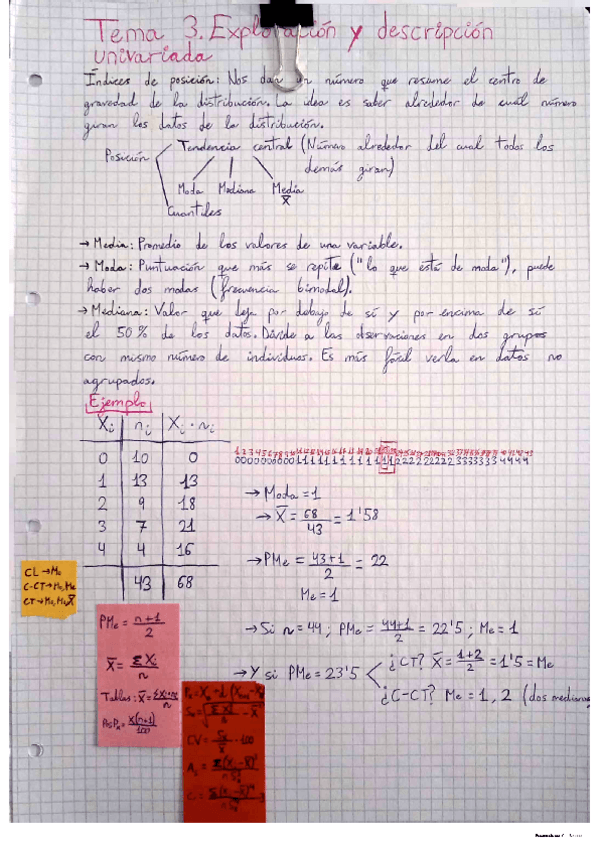 Tema 3. Exploración y descripción
univariada
Índices de posición: Nos dan un número que resume el centro de
gravedad de la distribución. La idea es saber alrededor de cuál número
giran los datos de la distribución.
Posición
Tendencia central (Número alrededor del cual todos los
demás giran)
Moda Mediana Media
X̄
Cuantiles
→ Media: Promedio de los valores de una variable.
→ Moda: Puntuación que más se repite ("lo que está de moda"), puede
haber dos modas (frecuencia bimodal).
→ Mediana: Valor que deja por debajo de sí y por encima de sí
el 50% de los datos. Divide a las observaciones en dos grupos
con mismo número de individuos. Es más fácil verla en datos no
agrupados.
Ejemplo
Xi ni Xi·ni
0 10 0
1 13 13
2 9 18
3 7 21
4 4 16
43 68
→ Moda = 1
→ X̄ = 68/43 = 1'58
→ PMe = 43+1/2 = 22
Me = 1
→ Si n = 44; PMe = 44+1/2 = 22'5; Me = 1
→ Y si PMe = 23'5
¿CT? X̄ = 1+2/2 = 1'5 = Me
¿C-CT? Me = 1, 2 (dos medianas)
CL → Mo
C-CT → Mo, Me
CT → Mo, Me, X̄
PMe = n+1/2
X̄ = ΣXi/n
Tablas: X̄ = ΣXi·ni/n
CV = Sx/X̄ · 100